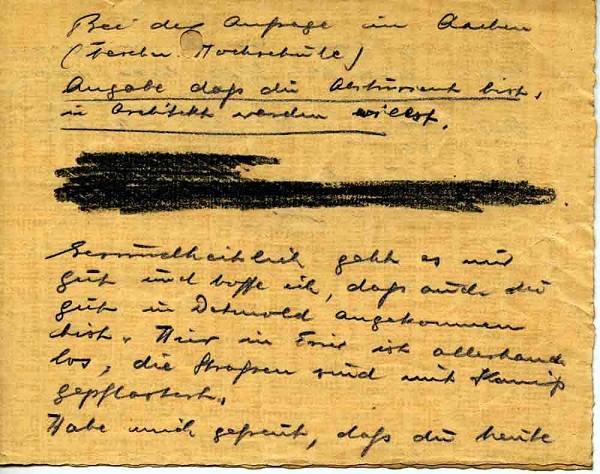 Bei der Anfrage in Aachen
(Techn. Hochschule)
Angabe daß du Abiturient bist,
u. Architekt werden willst.
Gesundheitlich geht es mir
gut und hoffe ich, daß auch du
gut in Detmold angekommen
bist. Hier in Trier ist allerhand
los, die Straßen sind mit
gepflastert.
Habe mich gefreut, daß du heute